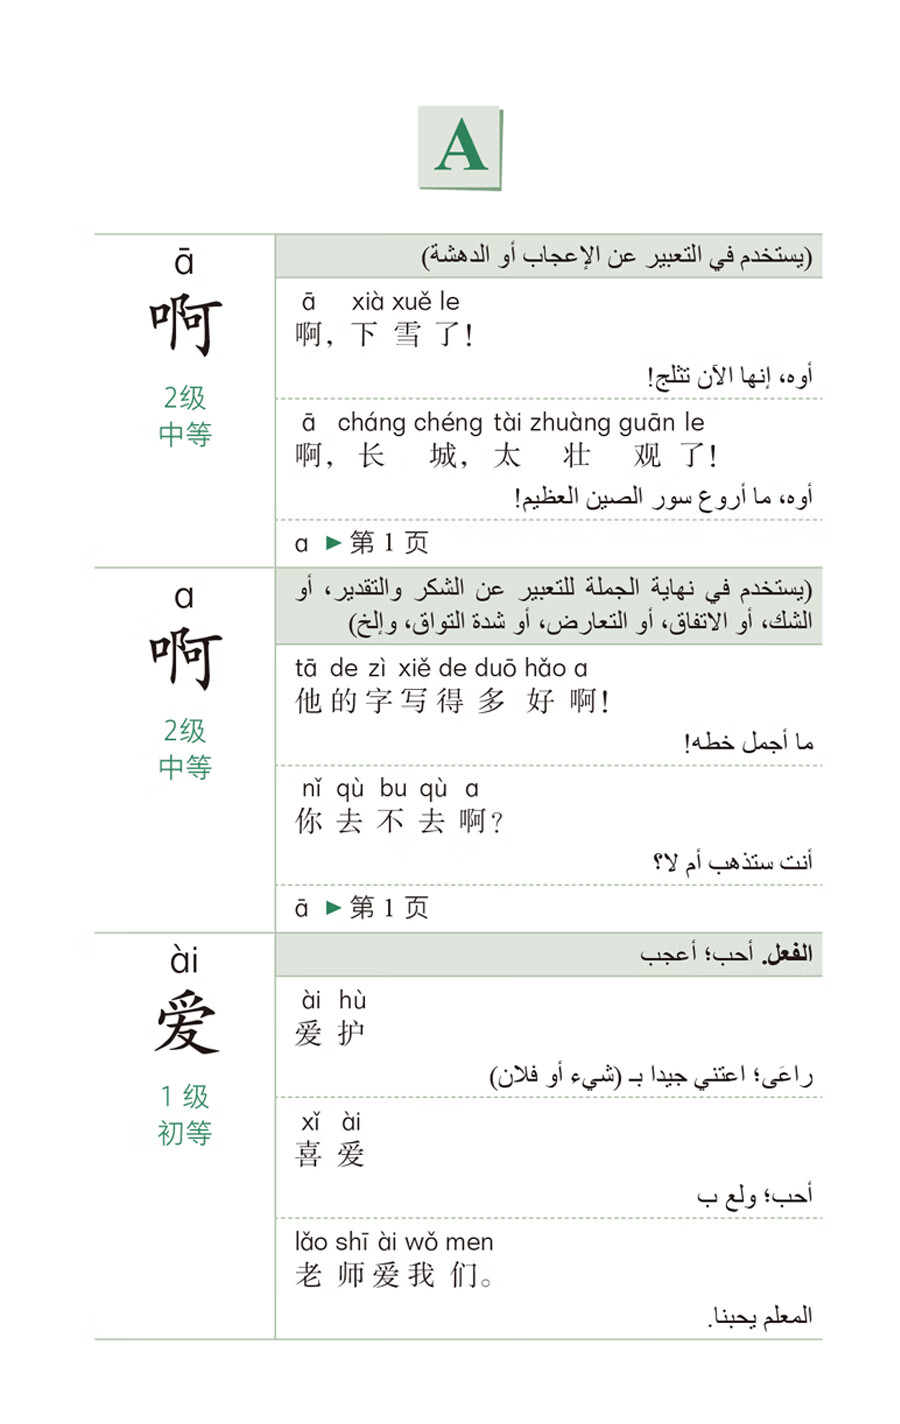 A
ā
啊
2级
中等
(يستخدم في التعبير عن الإعجاب أو الدهشة)
ā xià xuě le
啊, 下雪了!
أوه، إنها الآن تثلج!
ā cháng chéng tài zhuàng guān le
啊, 长城, 太壮观了!
أوه، ما أروع سور الصين العظيم!
a ▶ 第 1 页
a
啊
2级
中等
(يستخدم في نهاية الجملة للتعبير عن الشكر والتقدير، أو
الشك، أو الاتفاق، أو التعارض، أو شدة التواق، وإلخ)
tā de zì xiě de duō hǎo a
他的字写得多好啊!
ما أجمل خطه!
nǐ qù bu qù a
你去不去啊?
أنت ستذهب أم لا؟
ā ▶ 第 1 页
ài
爱
1 级
初等
الفعل. أحب؛ أعجب
ài hù
爱护
راعَى؛ اعتني جيدا بـ (شيء أو فلان)
xǐ ài
喜爱
أحب؛ ولع ب
lǎo shī ài wǒ men
老师爱我们。
المعلم يحبنا.